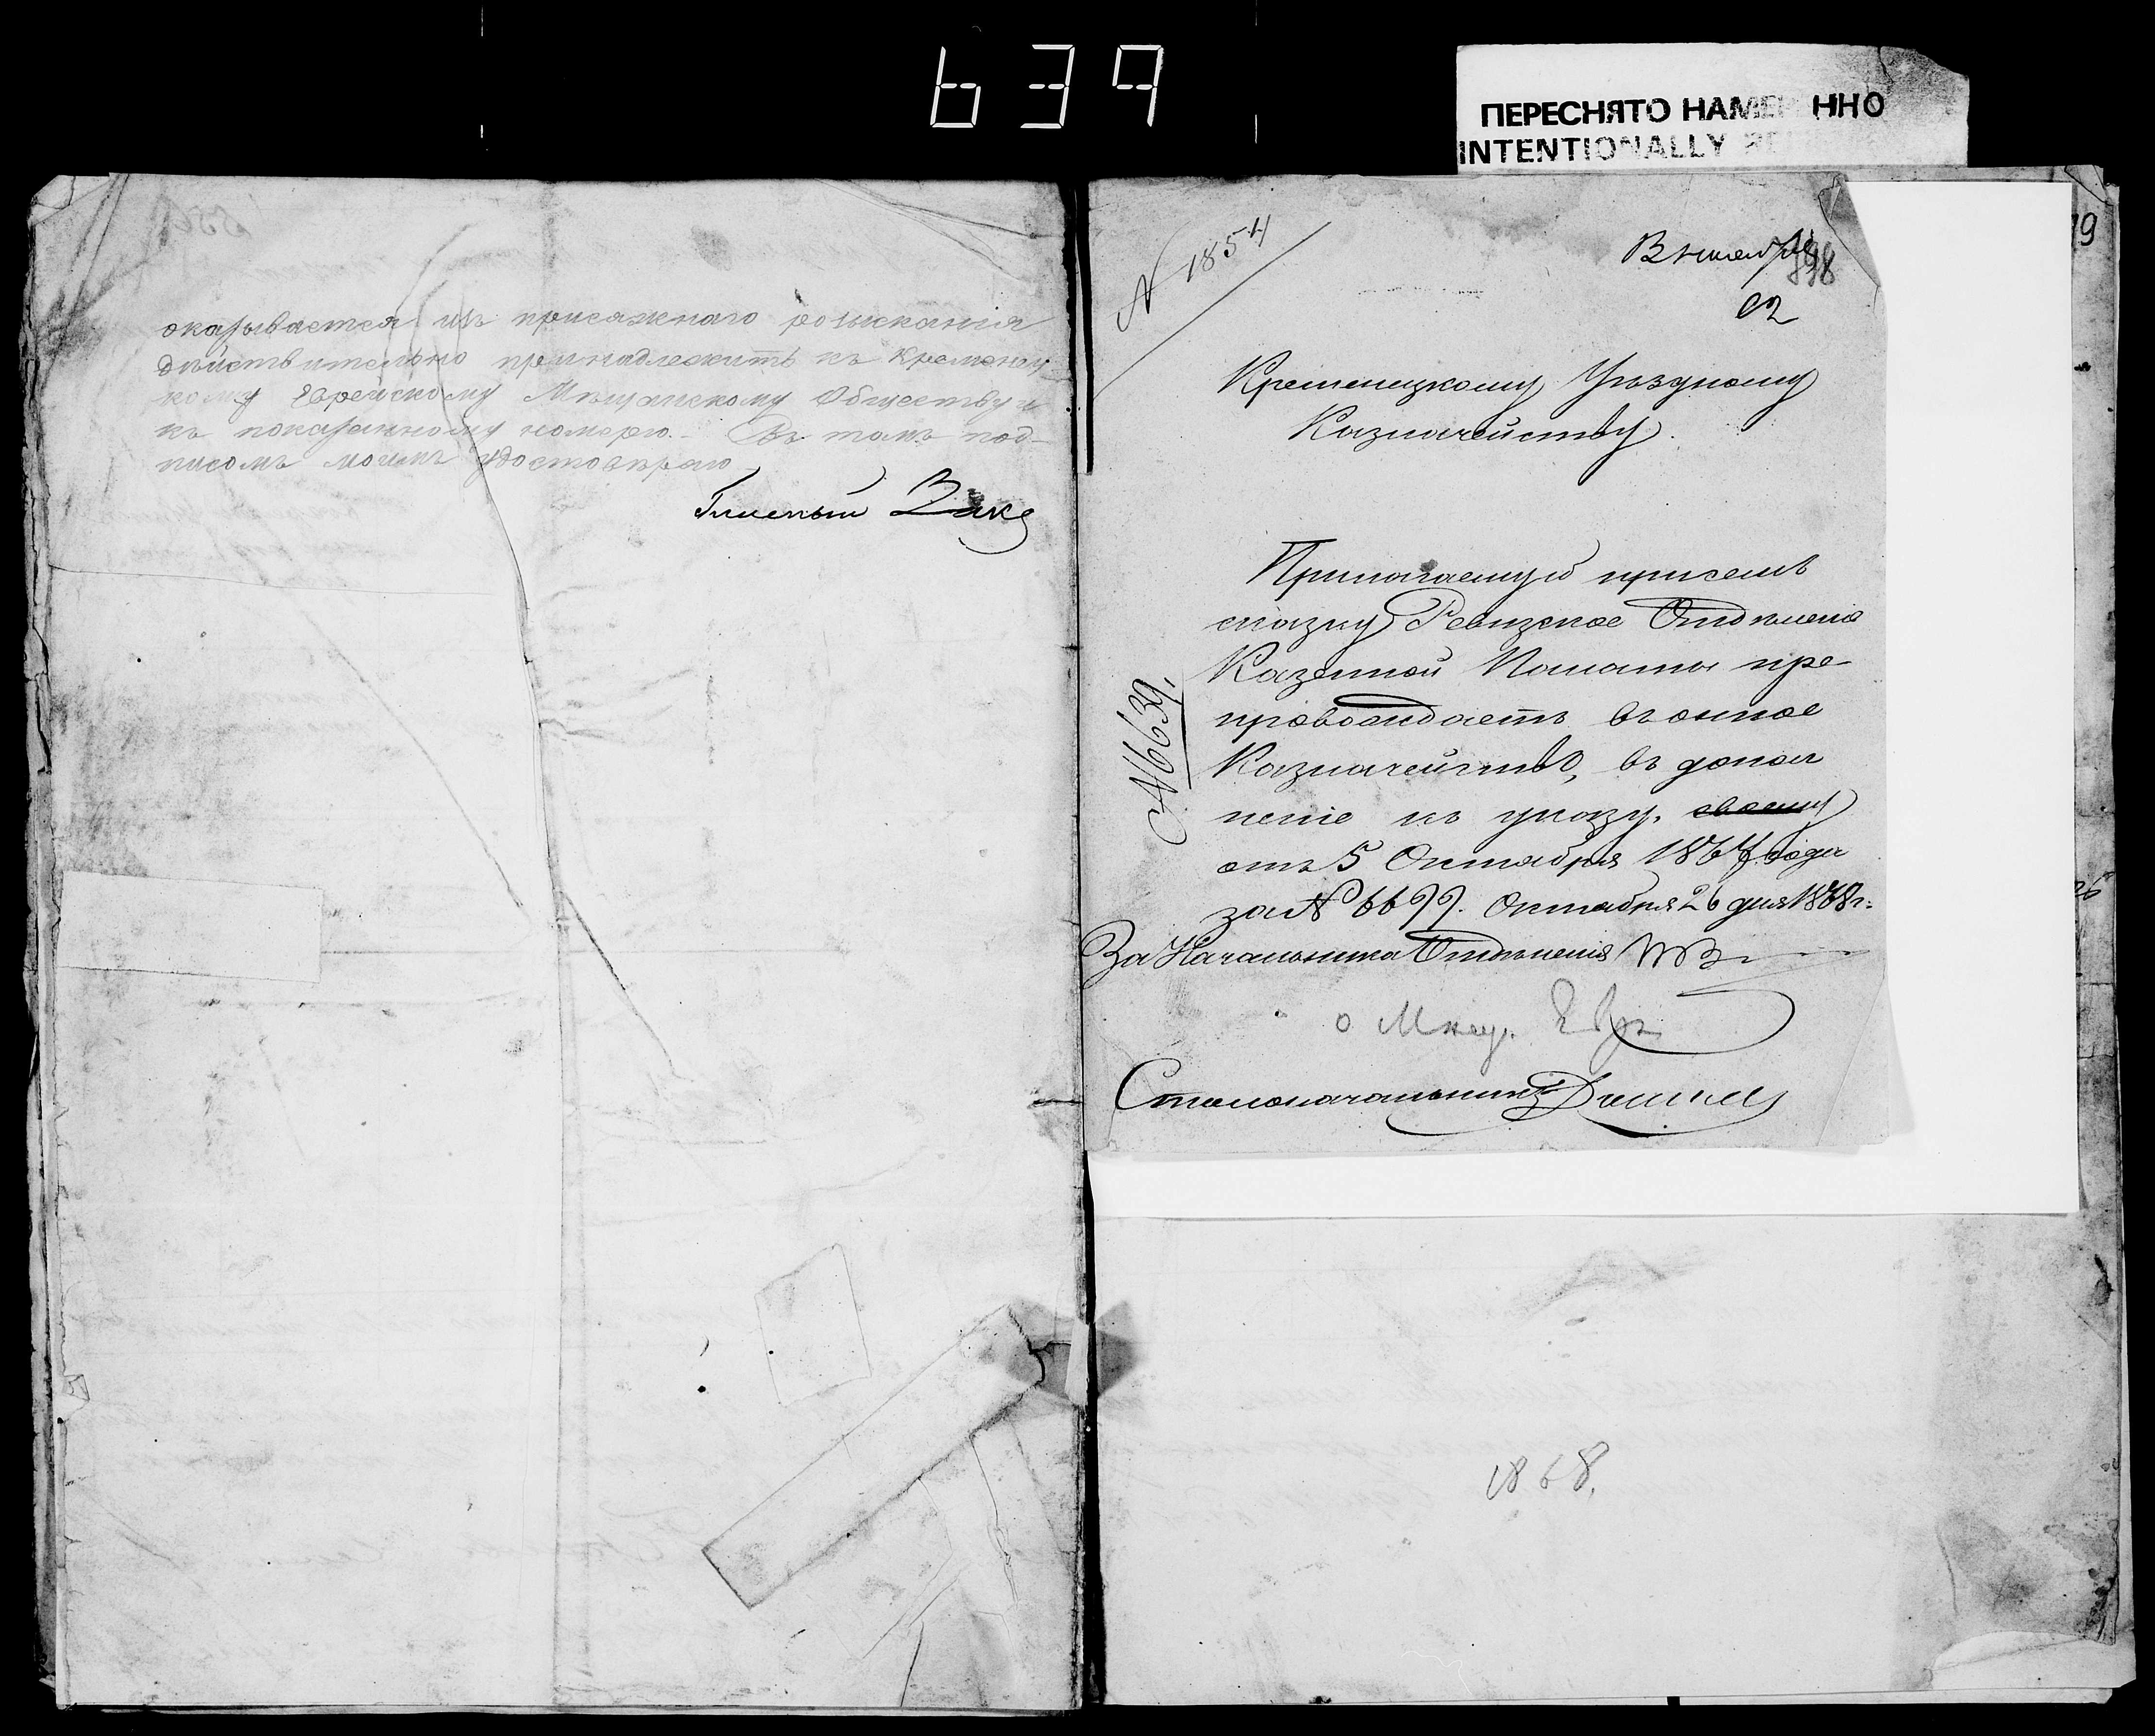 639
ПЕРЕСНЯТО НАМЕ ННО
INTENTIONALLY
оказывается изъ присяжнаго розысканія
дѣйствительно принадлежитъ къ Кременец-
кому Еврейскому Мѣщанскому Обществу и
къ показанному номеру. Въ томъ под-
писомъ моимъ удостовѣряю
Гласный Закс
19
N 1854
898
Кременецкому Уѣздному
Казначейству.
Прилагаемую присемъ
сказку Ревизское Отдѣленіе
Казенной Палаты пре-
провождаетъ въ оное
Казначейство, въ допол
неніе къ указу, своему
отъ 5 Октября 1867 года
за N 6699. Октября 26 дня 1868 г.
N 6639.
За Начальника Отдѣленія
о Мѣщ. Евр.
Столоначальникъ
1868.